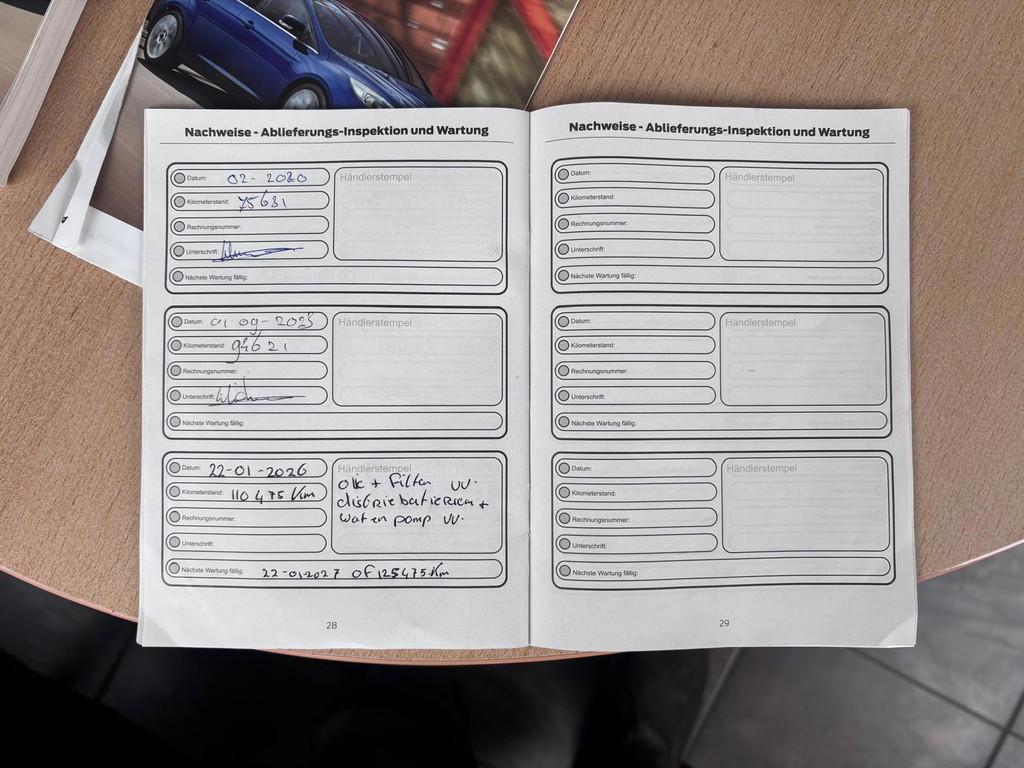 Nachweise - Ablieferungs-Inspektion und Wartung
Datum: 02-2020
Kilometerstand: 75631
Rechnungsnummer:
Unterschrift:
Händlerstempel
Nächste Wartung fällig:
Datum: 01 09-2023
Kilometerstand: 94621
Rechnungsnummer:
Unterschrift:
Händlerstempel
Nächste Wartung fällig:
Datum: 22-01-2026
Kilometerstand: 110475 Km
Rechnungsnummer:
Unterschrift:
Händlerstempel
olie + Filter VV.
distriebutieriem +
water pomp VV.
Nächste Wartung fällig: 22-01-2027 OF 125475 Km
28
Nachweise - Ablieferungs-Inspektion und Wartung
Datum:
Kilometerstand:
Rechnungsnummer:
Unterschrift:
Händlerstempel
Nächste Wartung fällig:
Datum:
Kilometerstand:
Rechnungsnummer:
Unterschrift:
Händlerstempel
Nächste Wartung fällig:
Datum:
Kilometerstand:
Rechnungsnummer:
Unterschrift:
Händlerstempel
Nächste Wartung fällig:
29